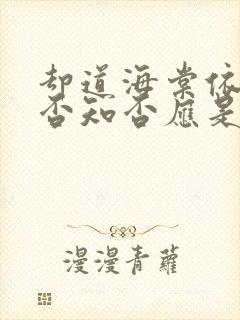 却道海棠依
否知否應是
漫漫青蘿